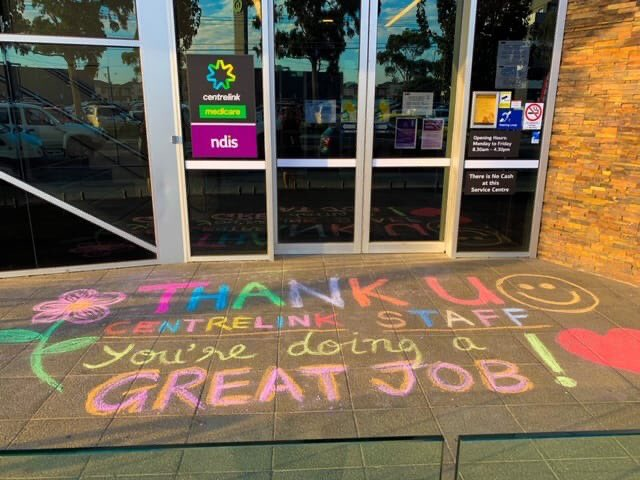 centrelink
medicare
ndis
Opening Hours:
Monday to Friday
8.30am - 4.30pm
There is No Cash
at this
Service Centre
THANK U
CENTRELINK STAFF
You're doing a
GREAT JOB!